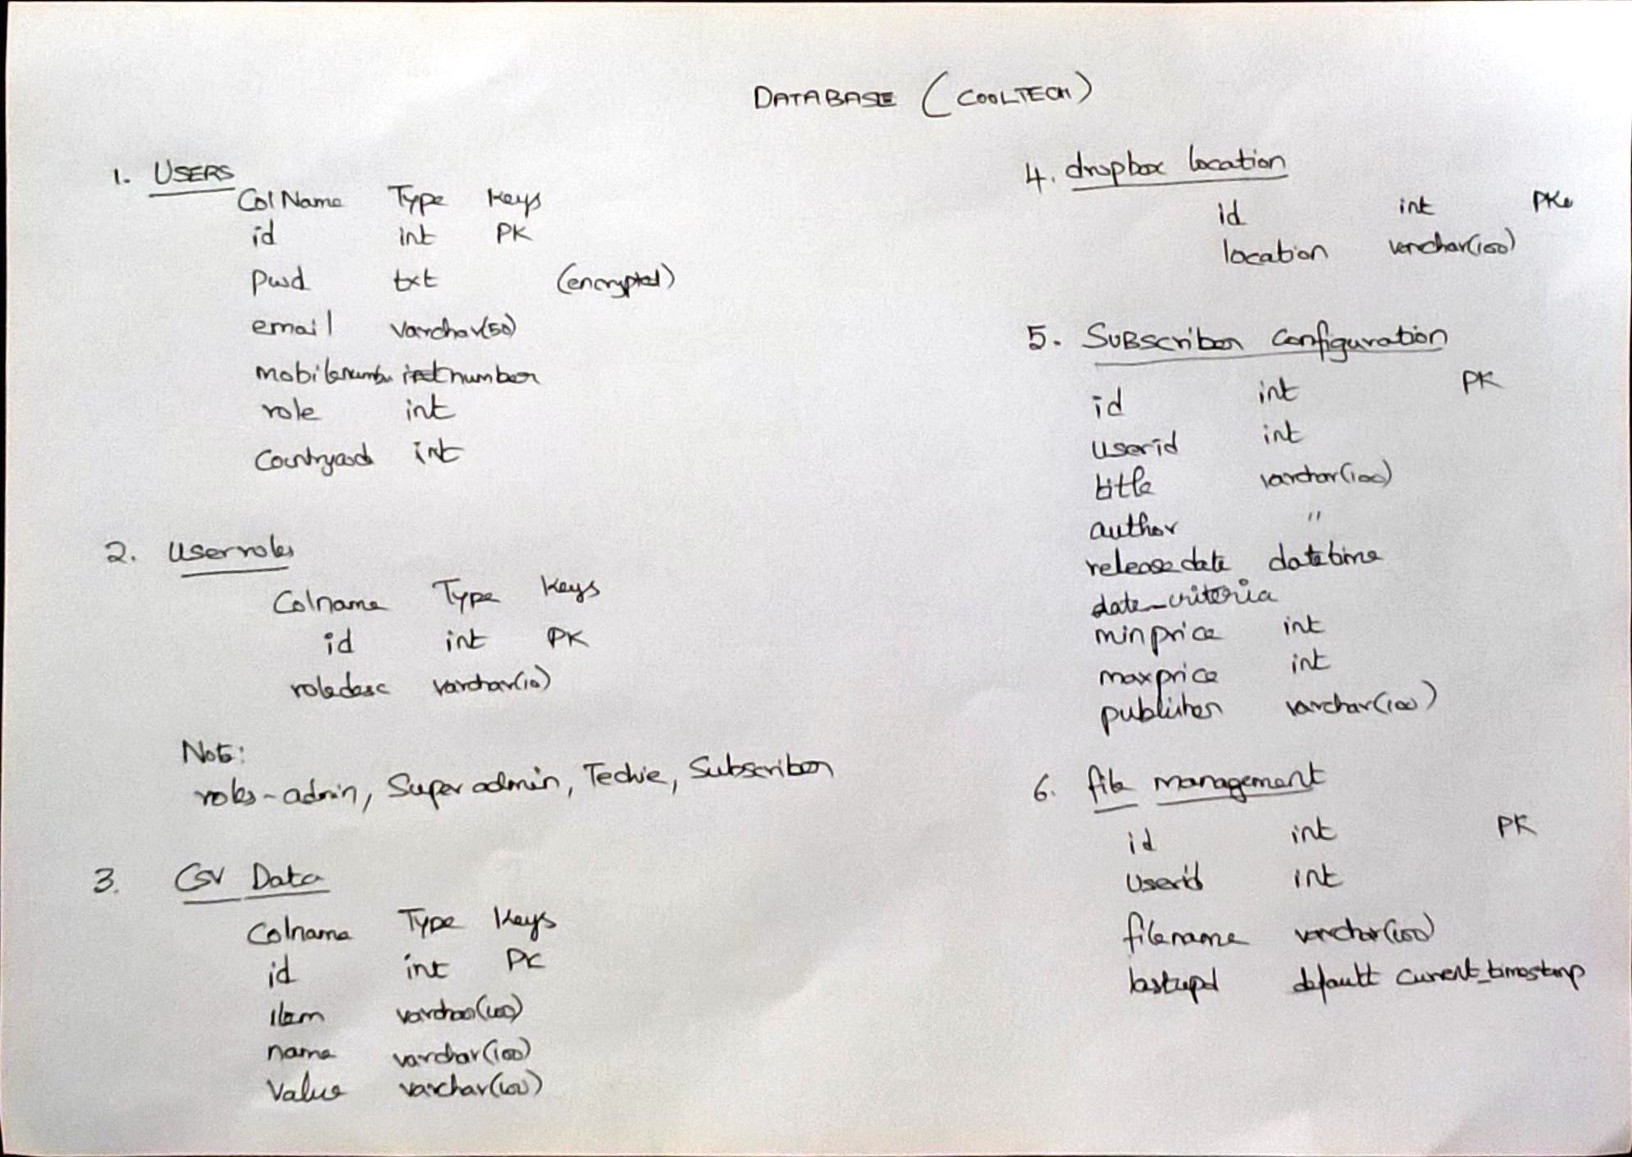 DATABASE (COOLTECH)
1. USERS
Col Name Type Keys
id int PK
pwd txt (encrypted)
email varchar(50)
mobilenumber number
role int
Countrycode int
2. Userroles
Colname Type Keys
id int PK
roledesc varchar(10)
Note:
roles - admin, Super admin, Techie, Subscriber
3. CSV Data
Colname Type Keys
id int PK
item varchar(100)
name varchar(100)
Value varchar(100)
4. dropbox location
id int PK
location varchar(100)
5. SUBscriber Configuration
id int PK
userid int
title varchar(100)
author "
releasedate datetime
date_criteria
minprice int
maxprice int
publisher varchar(100)
6. file management
id int PK
userid int
filename varchar(100)
lastupd default current_timestamp